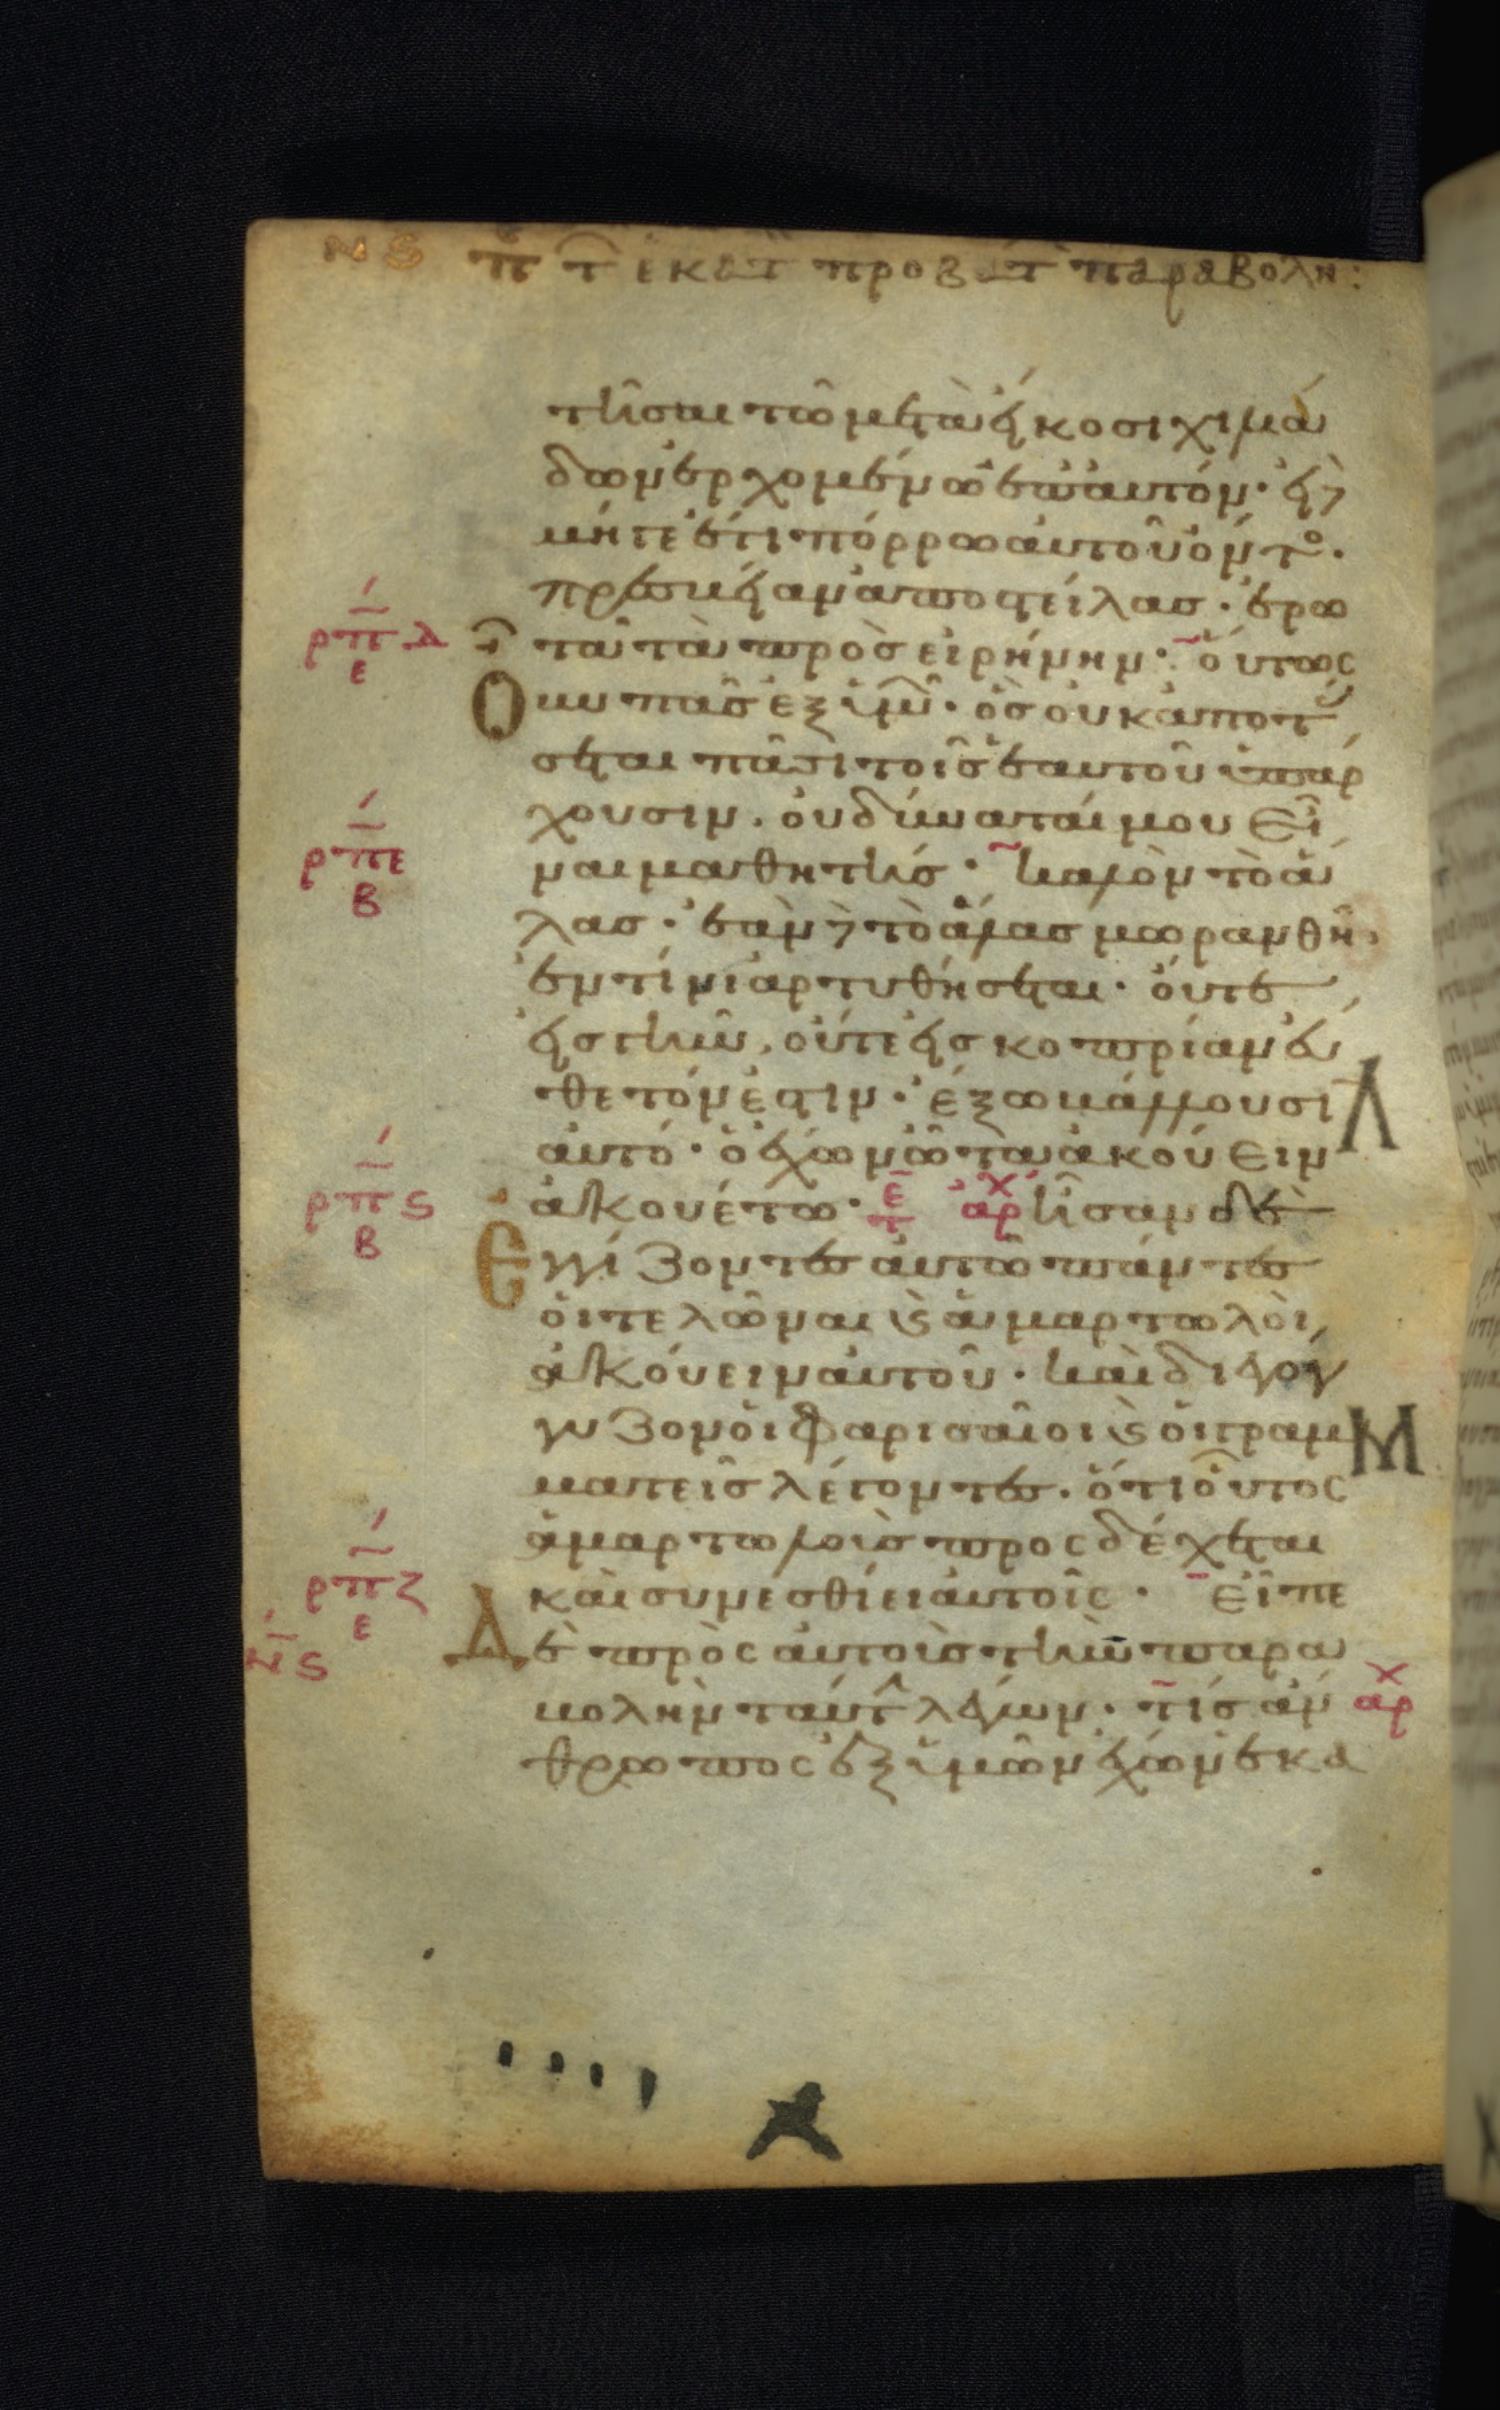 ΝϚ π τ εκατ προβατ παραβολη:
τῆσαι τῶ μετὰ εἴκοσι χιλιά
δων ἐρχομένω ἐπ αὐτόν· εἰ δὲ
μήτε ἔτι πόρρω αὐτοῦ ὄντο·
πρέσβειαν ἀποστείλας· ἐρω
ρπδ ε
τᾶ τὰ πρὸς εἰρήνην· οὕτως
Οὖν πᾶς ἐξ ὑμῶν· ὃς οὐκ ἀποτάσ
σεται πᾶσι τοῖς ἑαυτοῦ ὑπάρ
χουσιν· οὐ δύναταί μου εἶ
ρπε β
ναι μαθητής· καλὸν τὸ ἅ
λας· ἐὰν δὲ τὸ ἅλας μωρανθῆ·
ἐν τίνι ἀρτυθήσεται· οὔτε
εἰς γῆν, οὔτε εἰς κοπρίαν εὔ
θετόν ἐστιν· ἔξω βάλλουσι
αὐτό· ὁ ἔχων ὦτα ἀκούειν
Λ
ρπϛ β
ἀκουέτω· τε αρχ ἦσαν δὲ
Ἐγγίζοντες αὐτῶ πάντες
οἱ τελῶναι καὶ ἁμαρτωλοὶ
ἀκούειν αὐτοῦ· καὶ διεγόγ
γυζον οἱ φαρισαῖοι καὶ οἱ γραμ
Μ
ματεῖς λέγοντες· ὅτι οὗτος
ἁμαρτωλοὺς προσδέχεται
ρπζ ε
καὶ συνεσθίει αὐτοῖς· εἶπε
νϛ
Δὲ πρὸς αὐτοὺς τὴν παρα
βολὴν ταύτ λέγων· τίς ἄν
αρχ
θρωπος ἐξ ὑμῶν ἔχων ἑκα